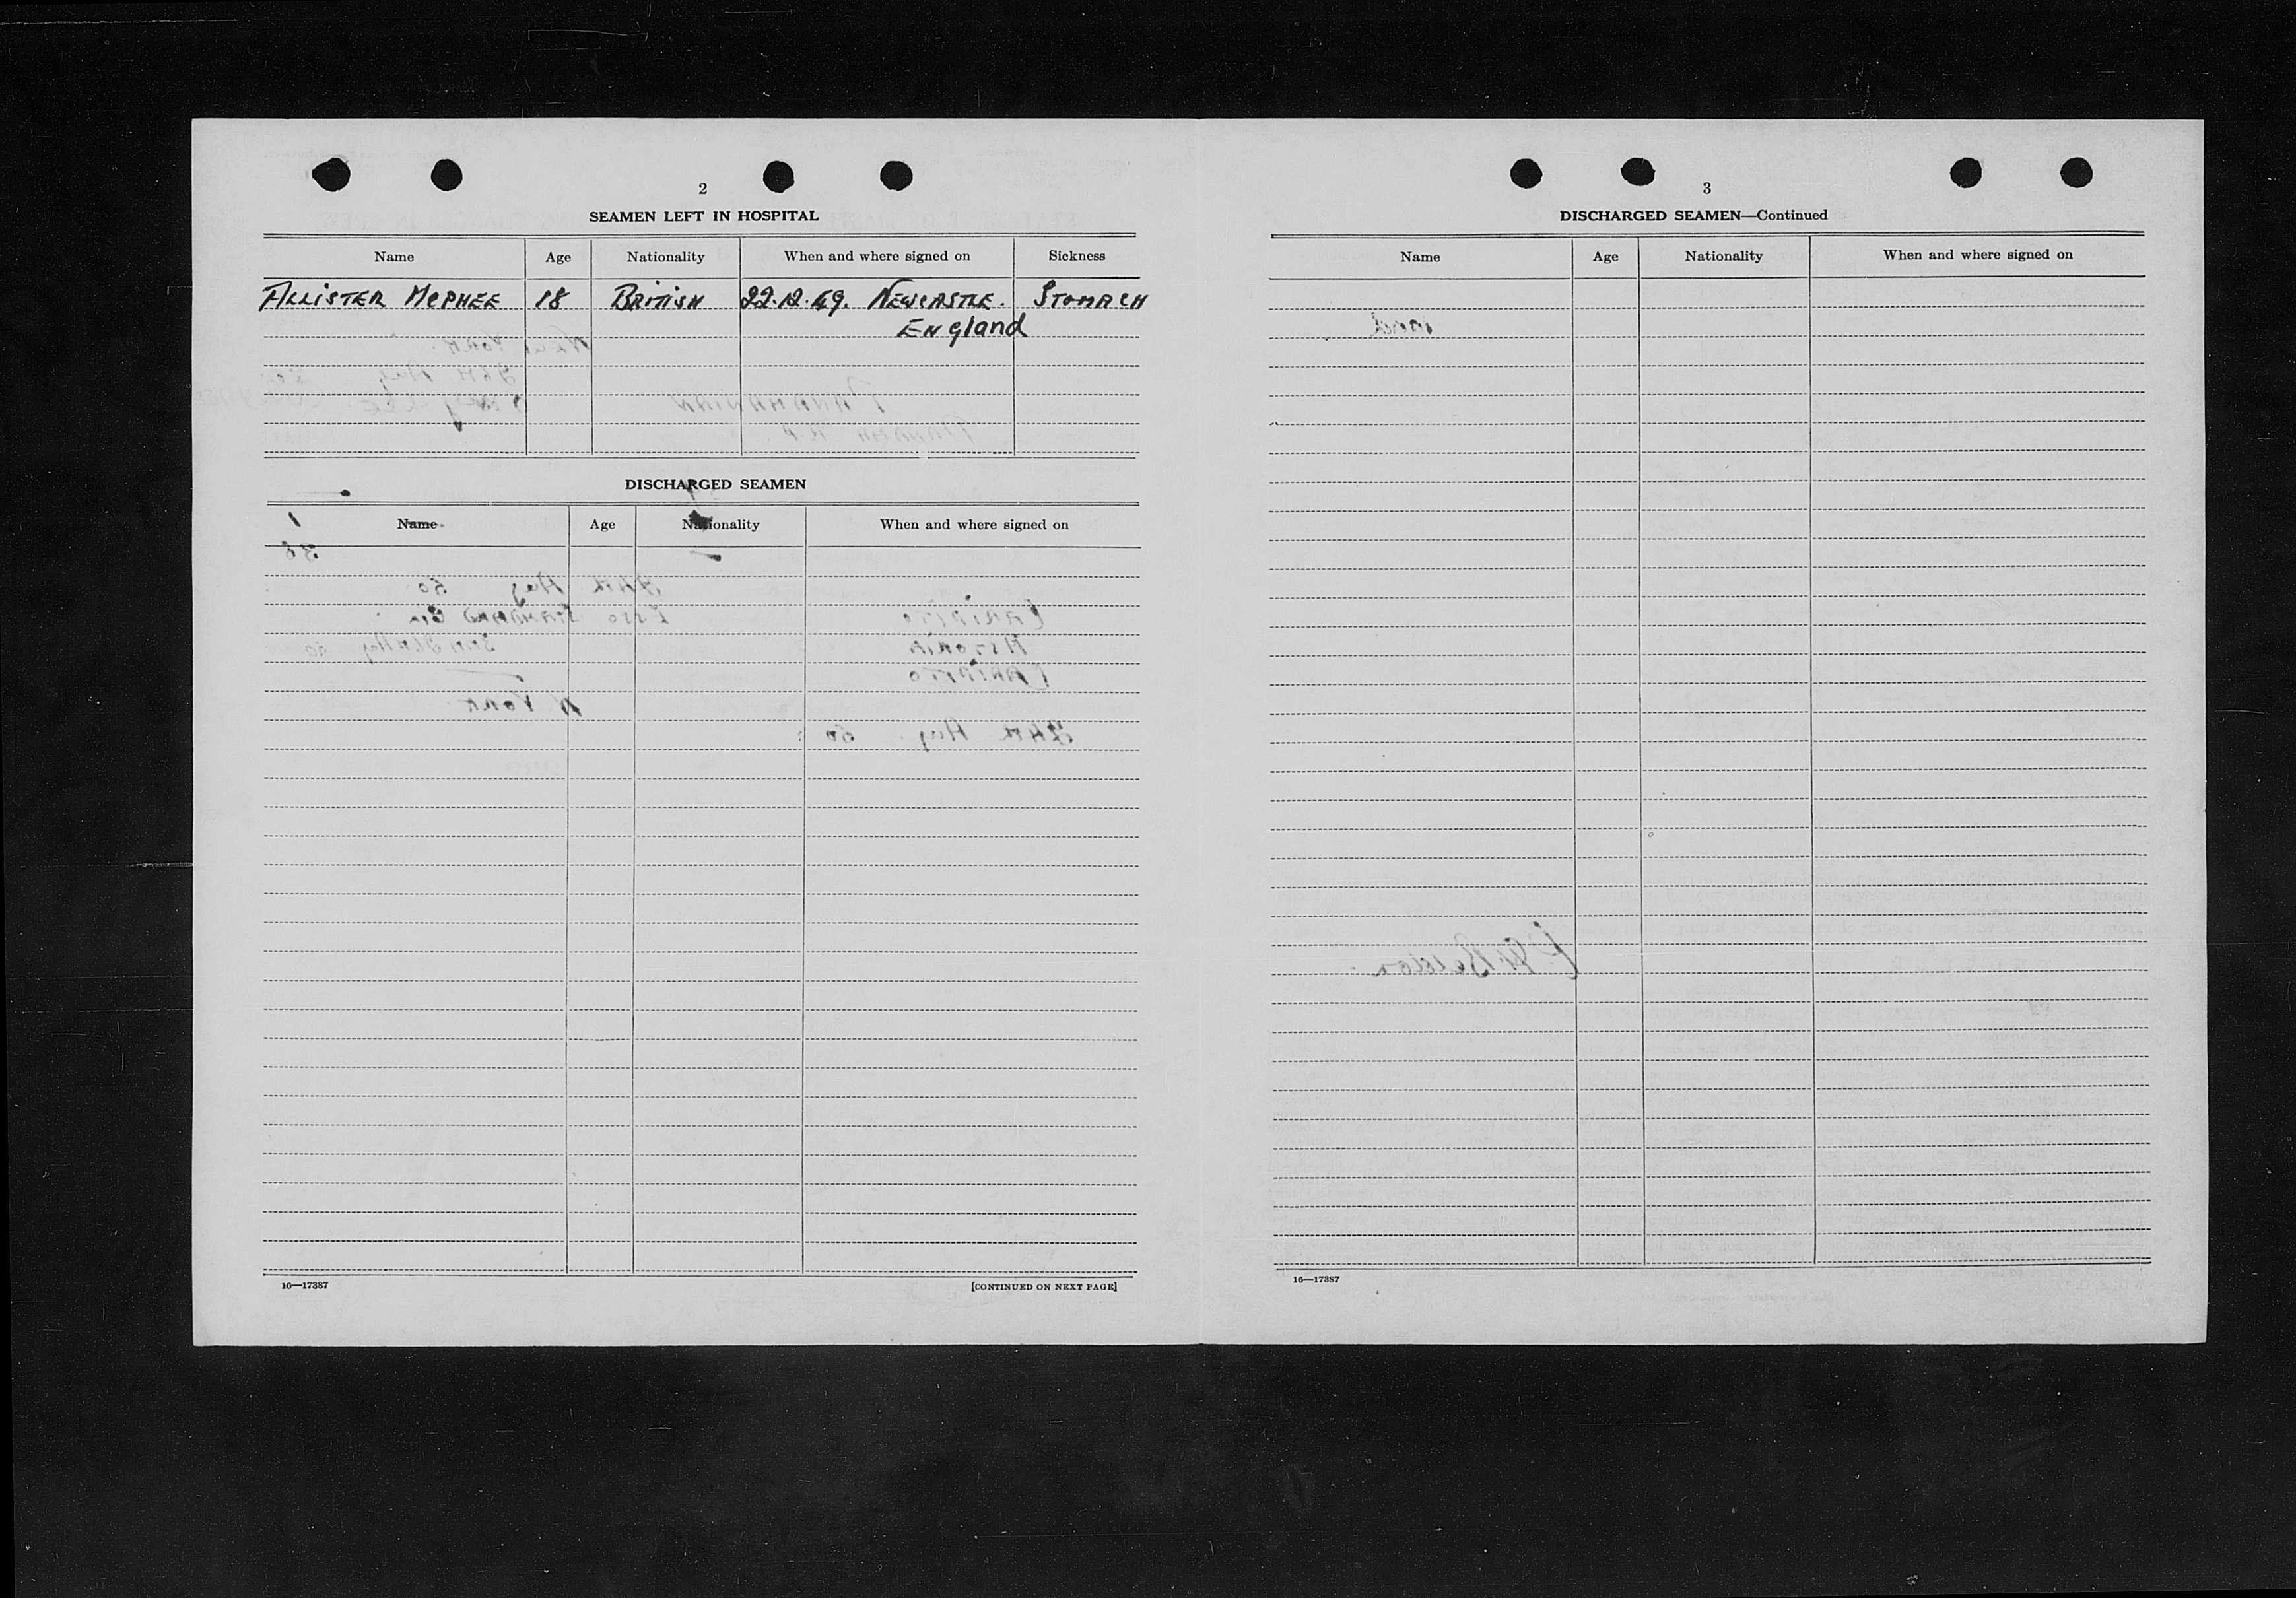 2
SEAMEN LEFT IN HOSPITAL
Name Age Nationality When and where signed on Sickness
ALLISTER MCPHEE 18 BRITISH 22.12.49. NEWCASTLE. STOMACH
ENgland
DISCHARGED SEAMEN
Name Age Nationality When and where signed on
16—17387
[CONTINUED ON NEXT PAGE]
3
DISCHARGED SEAMEN—Continued
Name Age Nationality When and where signed on
16—17387